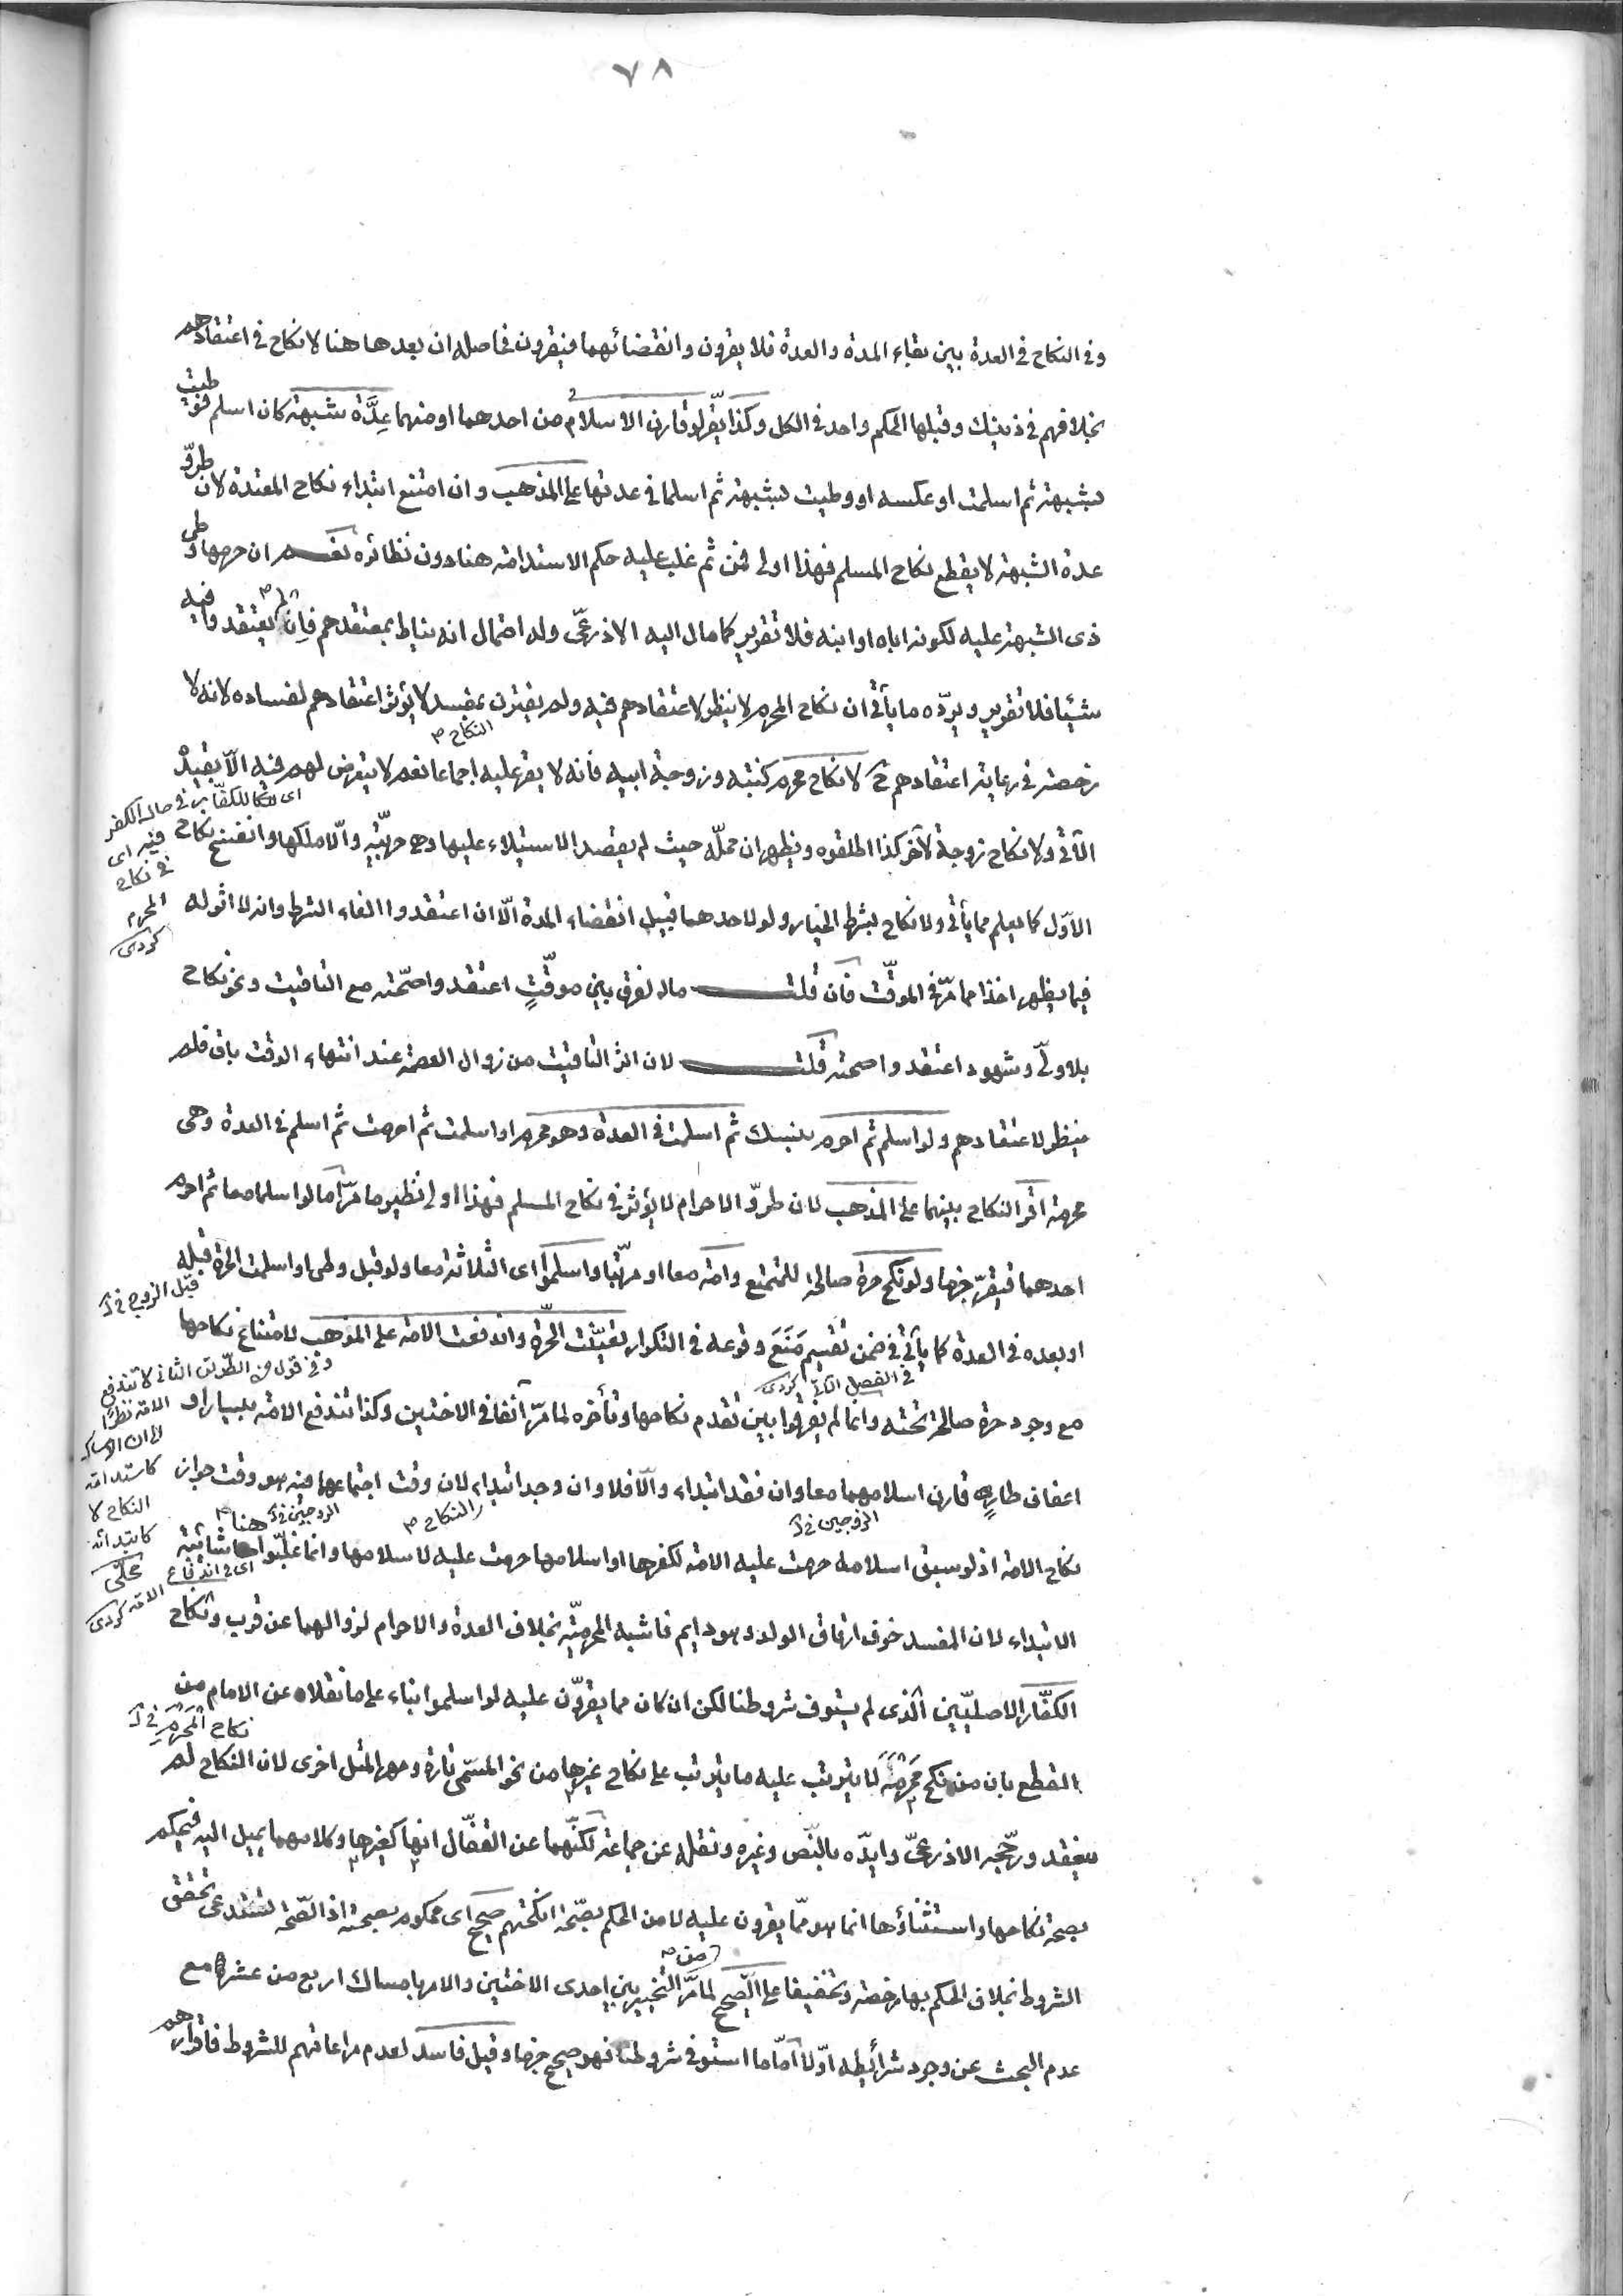 ٧٨
وفى النكاح فى العدة بين بقاء المدة والعدة فلا يقرون وانقضائهما فيقرون فحاصله ان بعدها هنا لا نكاح فى اعتقادهم
بخلافهم فى ذينك وقبلها الحكم واحد فى الكل وكذا يقر لو قارن الاسلام من احدهما او منهما عِدَّة شبهة كان اسلم فوطيت
بشبهة ثم اسلمت او عكسه او وطيت بشبهة ثم اسلما فى عدتها على المذهب وان امتنع ابتداء نكاح المعتدة لان طروّ
عدة الشبهة لا يقطع نكاح المسلم فهذا اولى فمن ثم غلب عليه حكم الاستدامة هنا دون نظائره نعم ان حرمها وطى
ذى الشبهة عليه لكونه اباه او ابنه فلا تقرير كما مال اليه الاذرعى وله احتمال انه يناط بمعتقدهم فان لم يعتقدوا فيه
شيئا فلا تقرير ويردّه ما يأتى ان نكاح المحرم لا ينظر لاعتقادهم فيه ولم يقترن بمفسد لا يؤثر اعتقادهم لفساده لانه لا
رخصة فى رعاية اعتقادهم ح لا نكاح محرم كبنته وزوجة ابيه فانه لا يقر عليه اجماعا نعم لا يتعرض لهم فيه الّا بقيده
النكاح
الآتى ولا نكاح زوجة لآخر كذا اطلقوه ويظهر ان محلّه حيث لم يقصد الاستيلاء عليها وهى حربيّة والّا ملكها وانفسخ نكاح
اى للكفار فى حال الكفر
فيه اى
فى نكاح
المحرم
كردى
الاوّل كما يعلم مما يأتى ولا نكاح بشرط الخيار ولو لاحدهما قبيل انقضاء المدة الّا ان اعتقدوا الغاء الشرط وانه لا اثر له
فيما يظهر اخذا مما مرّ فى الموقّت فان قلت ما الفرق بين موقّتٍ اعتقدوا صحّته مع التاقيت ونحو نكاح
بلا ولىّ وشهود اعتقدوا صحته قلت لان اثر التاقيت من زوال العصمة عند انتهاء الوقت باق فلم
ينظر لاعتقادهم ولو اسلم ثم احرم بنسك ثم اسلمت فى العدة وهو محرم او اسلمت ثم احرمت ثم اسلم فى العدة وهى
محرمة اقر النكاح بينهما على المذهب لان طروّ الاحرام لا يؤثر فى نكاح المسلم فهذا اولى نظير ما مرّ اما لو اسلما معا ثم احرم
احدهما فيقرّ جزما ولو نكح حرة صالحة للتمتع وامة معا او مرتّبا واسلموا اى الثلاثة معا ولو قبل وطى او اسلمت الحرة قبله
قبل الزوج
او بعده فى العدة كما يأتى فى ضمن تقسيم مَنَعَ وقوعه فى التكرار تعيّنت الحرّة واندفعت الامة على المذهب لامتناع نكاحها
فى الفصل الآتى كردى
مع وجود حرة صالحة تحته وانما لم يفرقوا بين تقدم نكاحها وتأخره لما مرّ آنفا فى الاختين وكذا تندفع الامة بيسار او
وفى قول من الطريق الثانى لا تندفع
الامة نظرًا
الى ان الامساك
كاستدامة
النكاح لا
كابتدائه
محلّى
اعفاف طارٍ قارن اسلامهما معا وان فقد ابتداء والّا فلا وان وجد ابتداء لان وقت اجتماعهما فيه هو وقت جواز
الزوجين
نكاح الامة اذ لو سبق اسلامه حرمت عليه الامة لكفرها او اسلامها حرمت عليه لاسلامها وانما غلّبوا هنا شائبة
اى فى اندفاع الامة كردى
الابتداء لان المفسد خوف ارقاق الولد وهو دايم فاشبه المحرميّة بخلاف العدة والاحرام لزوالهما عن قرب ونكاح
الكفّار الاصليّين الّذى لم يستوف شروطنا لكن ان كان مما يقرّون عليه لو اسلموا بناء على ما نقلاه عن الامام من
نكاح المَحْرَم
القطع بان من نكح مَحْرَمَة لا يترتب عليه ما يترتب على نكاح غيرها من نحو المسمّى تارة ومهر المثل اخرى لان النكاح لم
ينعقد ورجّحه الاذرعىّ وايدّه بالنّص وغيره ونقله عن جماعة لكنّهما عن القفّال انها كغيرها وكلامهما يميل اليه فيحكم
بصحة نكاحها واستثناؤها انما هو ممّا يقرون عليه لا من الحكم بصّحة انكحتهم صحيح اى محكوم بصحته اذ الصّحة تستدعى تحقق
الشروط بخلاف الحكم بها رخصة وتخفيفا على الصّحيح لما مرّ من التخيير بين احدى الاختين والامر بامساك اربع من عشرة مع
عدم البحث عن وجود شرائطه اوّلا امّا ما استوفى شروطنا فهو صحيح جزما وقيل فاسد لعدم مراعاتهم للشروط فاقرارهم